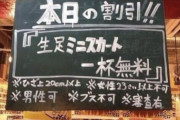 本日の割引!!
生足ミニスカート
一杯無料
※ひざ上20cm以上 ※女性23才以上不可
※男性可 ※ブス不可 ※審査有